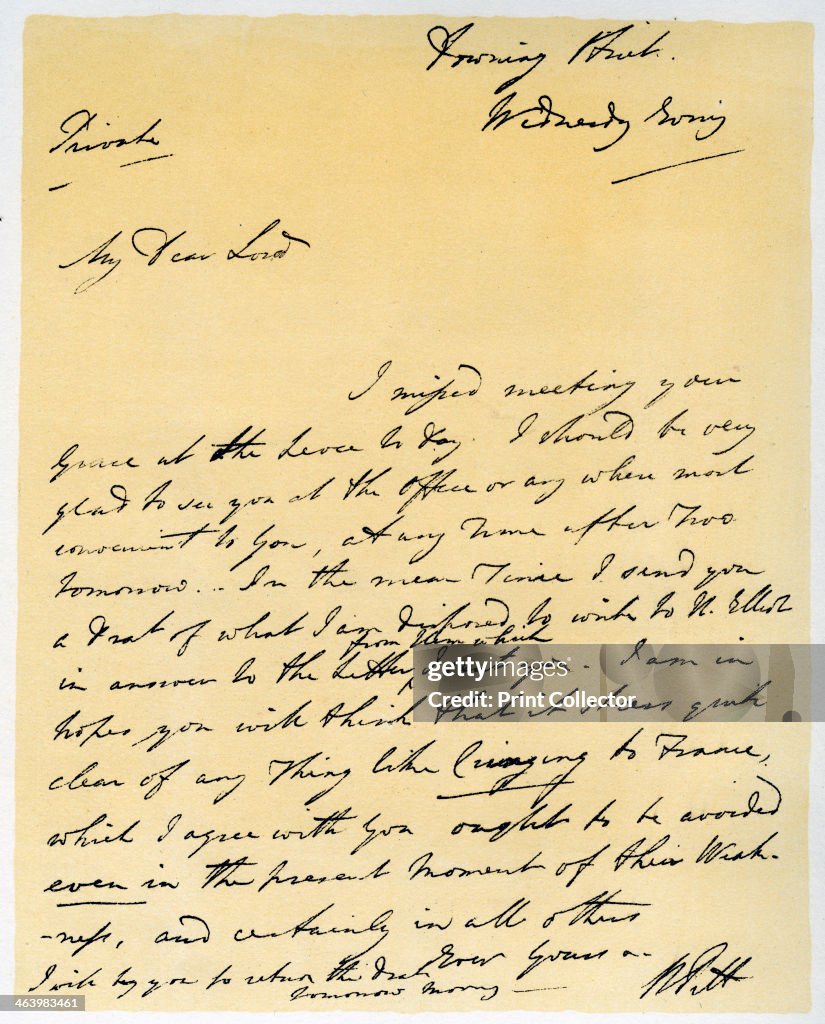 Downing Street.
Wednesday Evening
Private
My Dear Lord
I missed meeting your
Grace at the Levee to Day. I should be very
glad to see you at the Office or any where most
convenient to You, at any Time after Two
tomorrow. - In the mean Time I send you
a Draft of what I am disposed to write to H. Elliot
from them which
in answer to the Letter I am in
hopes you will think that it steers quite
clear of any Thing like Cringing to France,
which I agree with You ought to be avoided
even in the present Moment of their Weak-
-ness, and certainly in all others
Ever Yours
I will beg you to return the Draft
tomorrow morng
W Pitt
gettyimages
Print Collector
463983461